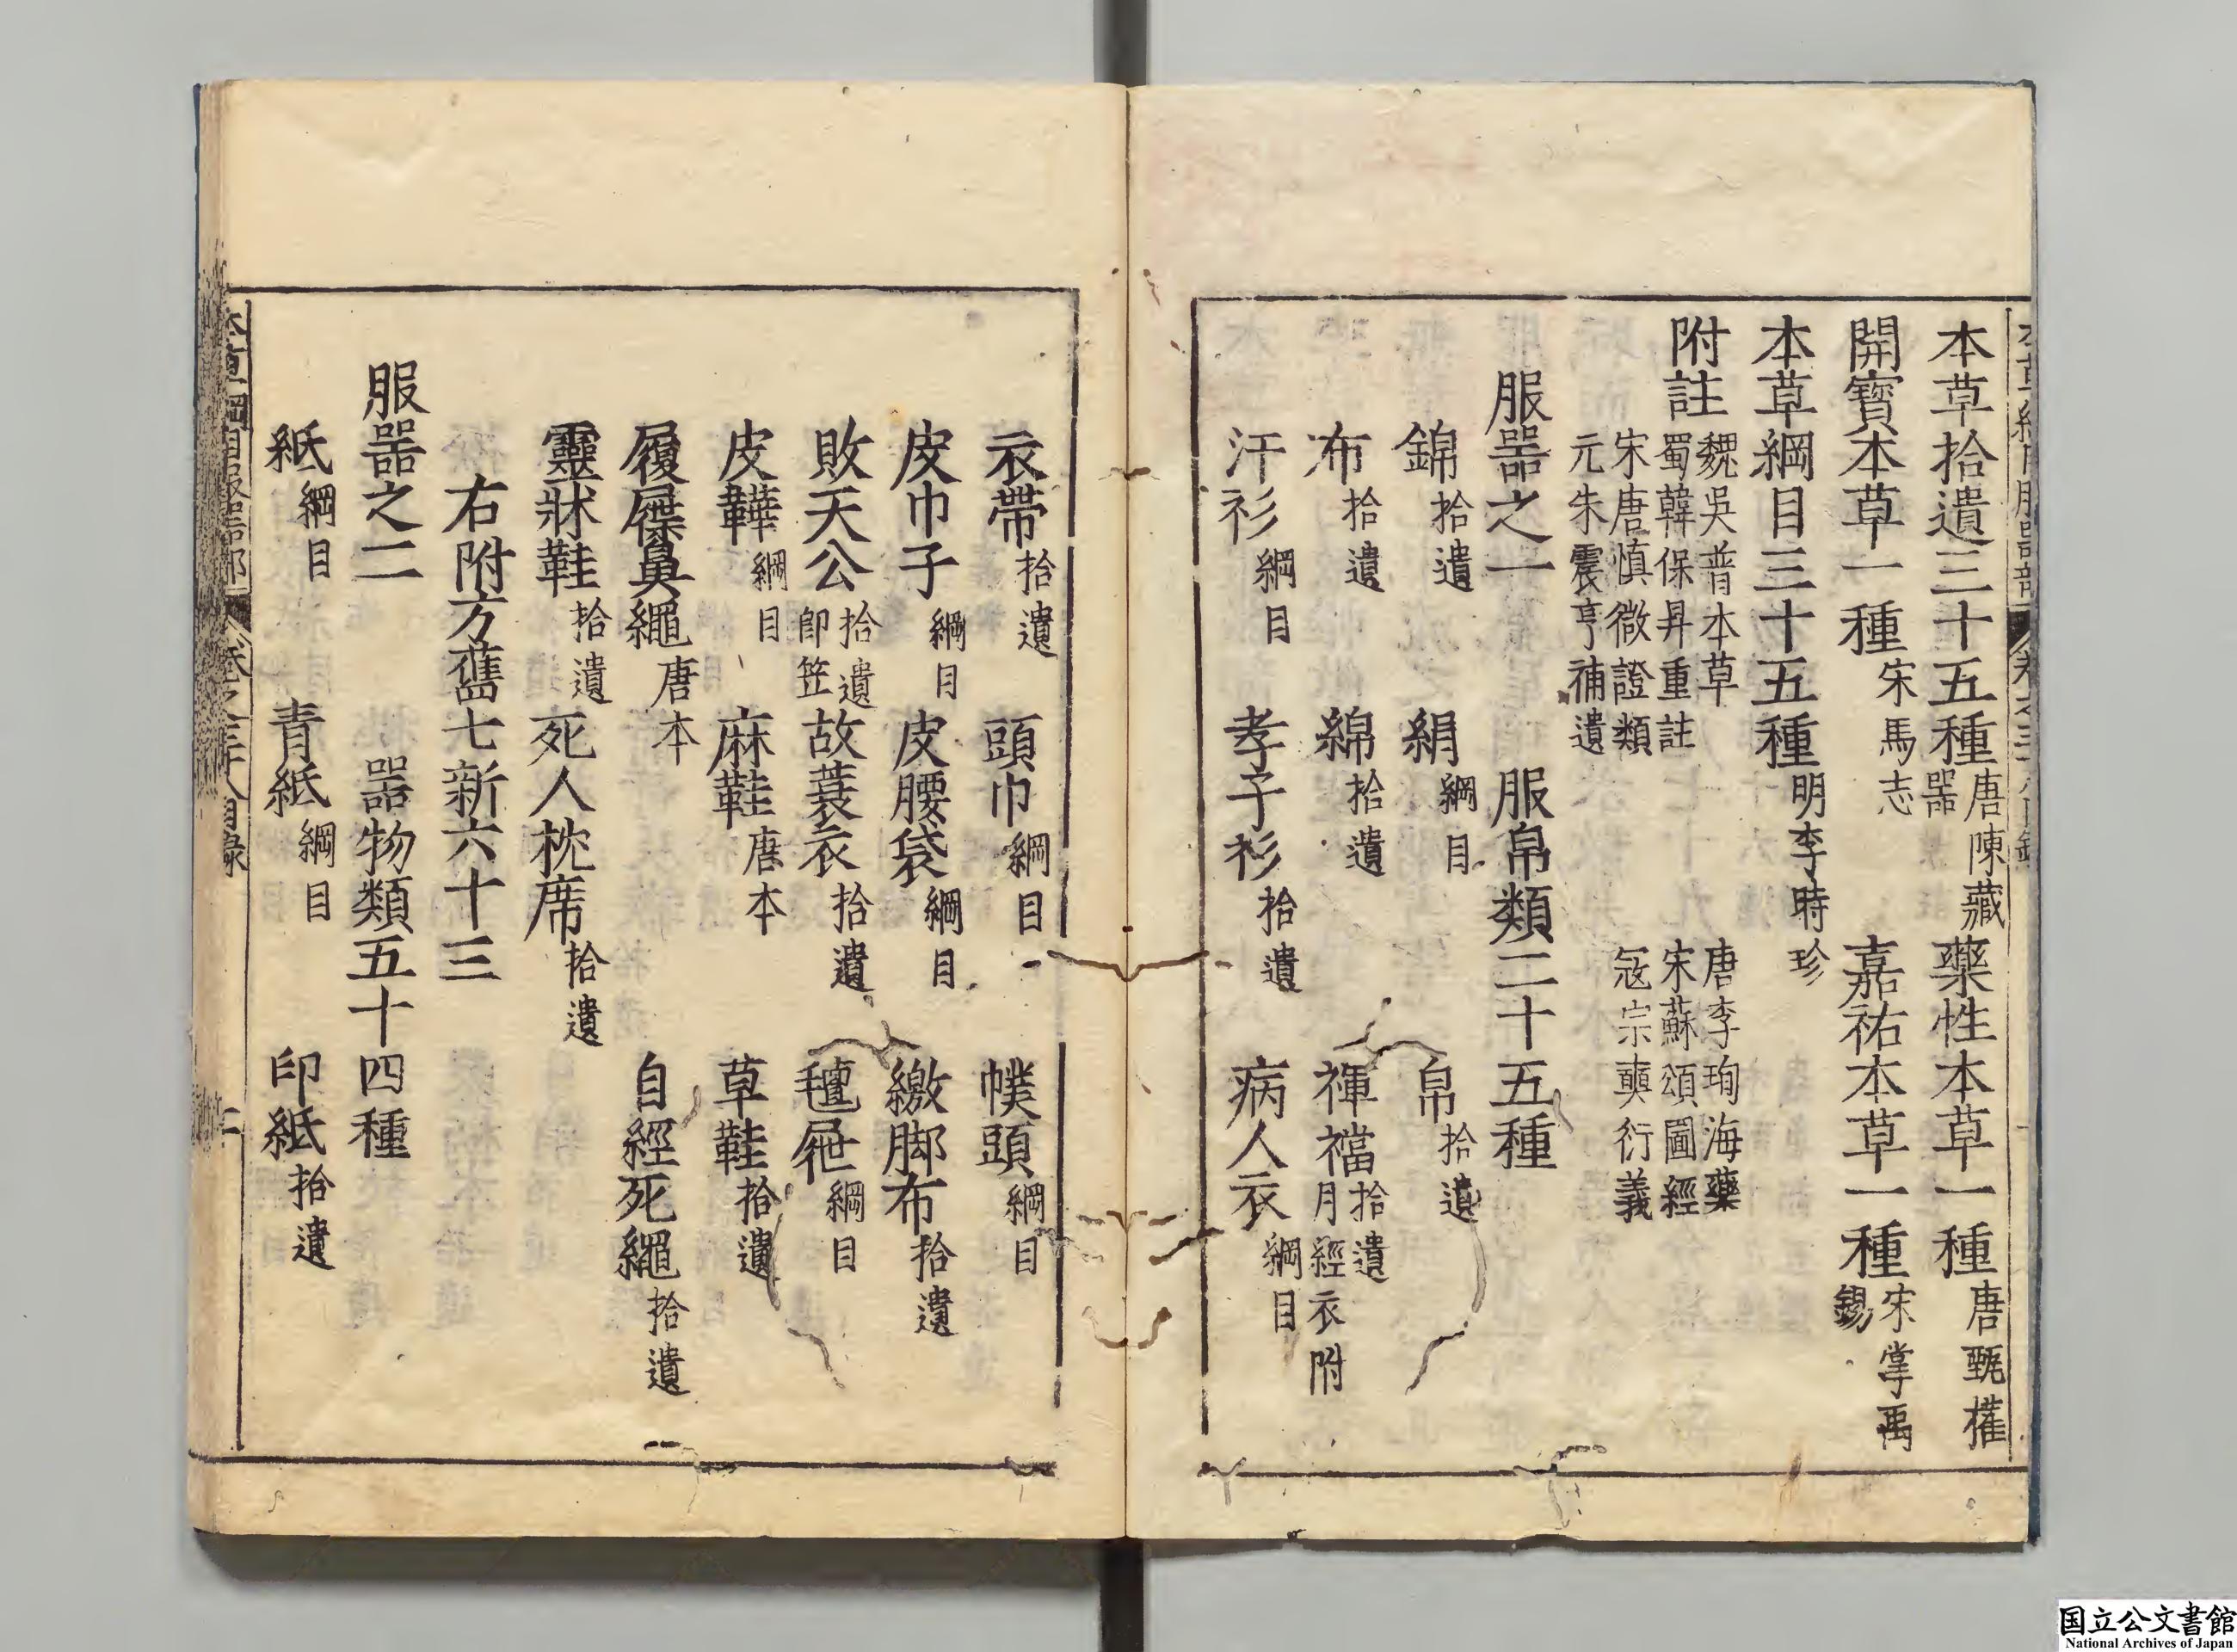 本草拾遺三十五種唐陳藏器 藥性本草一種唐甄權
開寶本草一種宋馬志 嘉祐本草一種宋掌禹錫
本草綱目三十五種明李時珍
附註魏吳普本草 唐李珣海藥
蜀韓保昇重註 宋蘇頌圖經
宋唐慎微證類 寇宗奭衍義
元朱震亨補遺
服器之一 服帛類二十五種
錦拾遺 絹綱目 帛拾遺
布拾遺 綿拾遺 褌襠拾遺月經衣附
汗衫綱目 孝子衫拾遺 病人衣綱目
衣帶拾遺 頭巾綱目 幞頭綱目
皮巾子綱目 皮腰袋綱目 繳脚布拾遺
敗天公拾遺卽笠 故蓑衣拾遺 氊屜綱目
皮鞾綱目 麻鞋唐本 草鞋拾遺
履屧鼻繩唐本 自經死繩拾遺
靈牀鞋拾遺 死人枕席拾遺
右附方舊七新六十三
服器之二 器物類五十四種
紙綱目 青紙綱目 印紙拾遺
本草綱目服器部 卷之三十八目錄 二
国立公文書館
National Archives of Japan